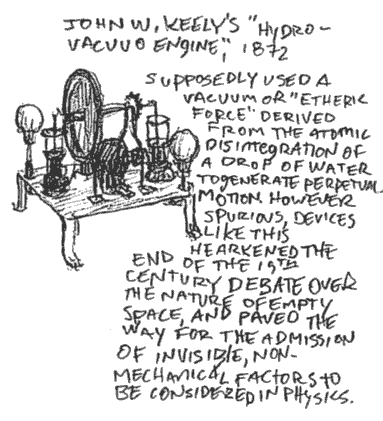 JOHN W. KEELY'S "HYDRO-
VACUUO ENGINE", 1872
SUPPOSEDLY USED A
VACUUM OR "ETHERIC
FORCE" DERIVED
FROM THE ATOMIC
DISINTEGRATION OF
A DROP OF WATER
TO GENERATE PERPETUAL
MOTION. HOWEVER
SPURIOUS, DEVICES
LIKE THIS
HEARKENED THE
END OF THE 19TH
CENTURY DEBATE OVER
THE NATURE OF EMPTY
SPACE, AND PAVED THE
WAY FOR THE ADMISSION
OF INVISIBLE, NON-
MECHANICAL FACTORS TO
BE CONSIDERED IN PHYSICS.